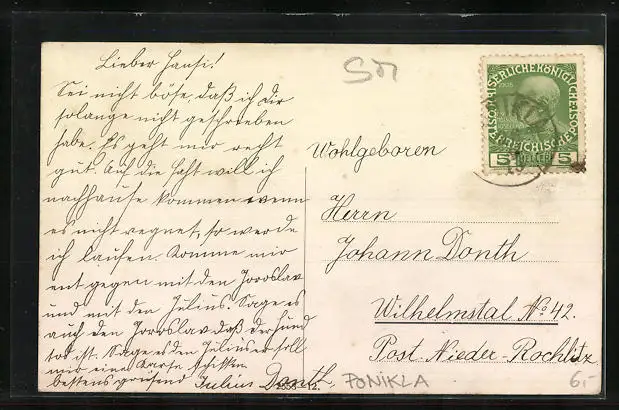 Lieber Hansi!
Sei nicht böse, daß ich dir
solange nicht geschrieben
habe. Es geht mir recht
gut. Auf die will ich
nachhause kommen wenn
es nicht regnet, so werde
ich laufen. Komme mir
ent gegen mit den Joroslav
und mit den Julius. Sage es
auch den Joroslav daß der Hund
tot ist. Sage es den Julius er soll
mir eine Karte schikken
bestens grüßend Julius Donth
Wohlgeboren
Herrn
Johann Donth
Wilhelmstal No 42.
Post Nieder-Rochlitz
KAISERLICHE KÖNIGLICHE
ÖSTERREICHISCHE POST
5 HELLER 5
PONIKLA
6,-